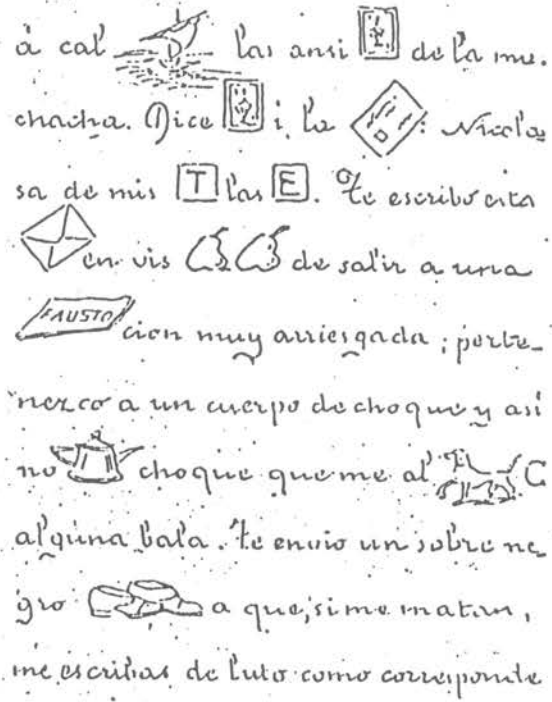 á cal las ansi de la mu-
chacha. Dice i la : Nicola
sa de mis T las E. Te escribo esta
en vis de salir a una
FAUSTO cion muy arriesgada ; perte-
nezco a un cuerpo de choque y así
no choque que me al C
alguna bala. Te envio un sobre ne
gro a que, si me matan,
me escribas de luto como corresponde